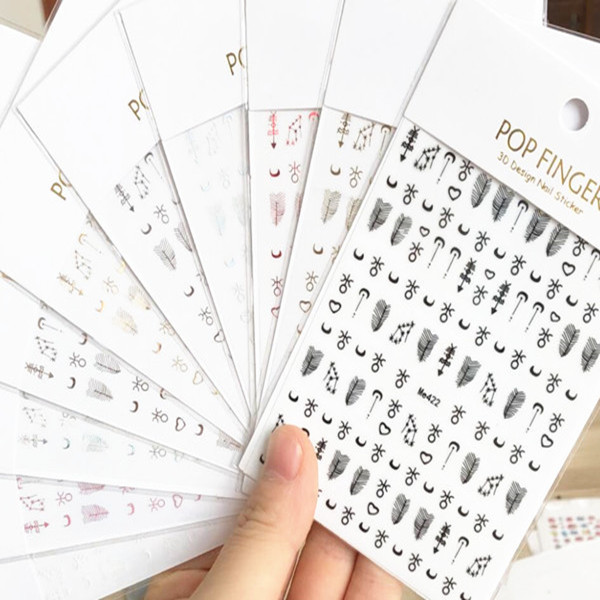 POP FINGER
3D Design Nail Sticker
Ma422
PO
PO
PO
PO